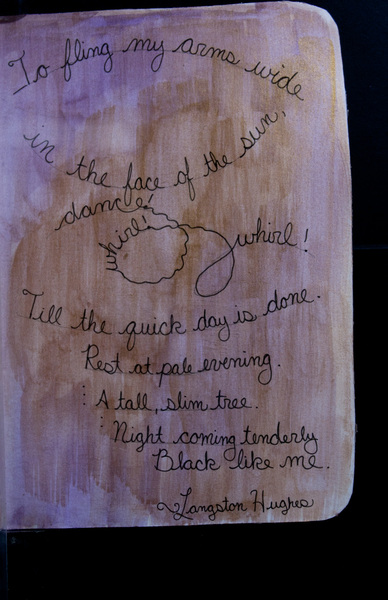 To fling my arms wide
in the face of the sun,
dance!
whirl!
whirl!
Till the quick day is done.
Rest at pale evening.
: A tall, slim tree.
: Night coming tenderly
Black like me.
~Langston Hughes